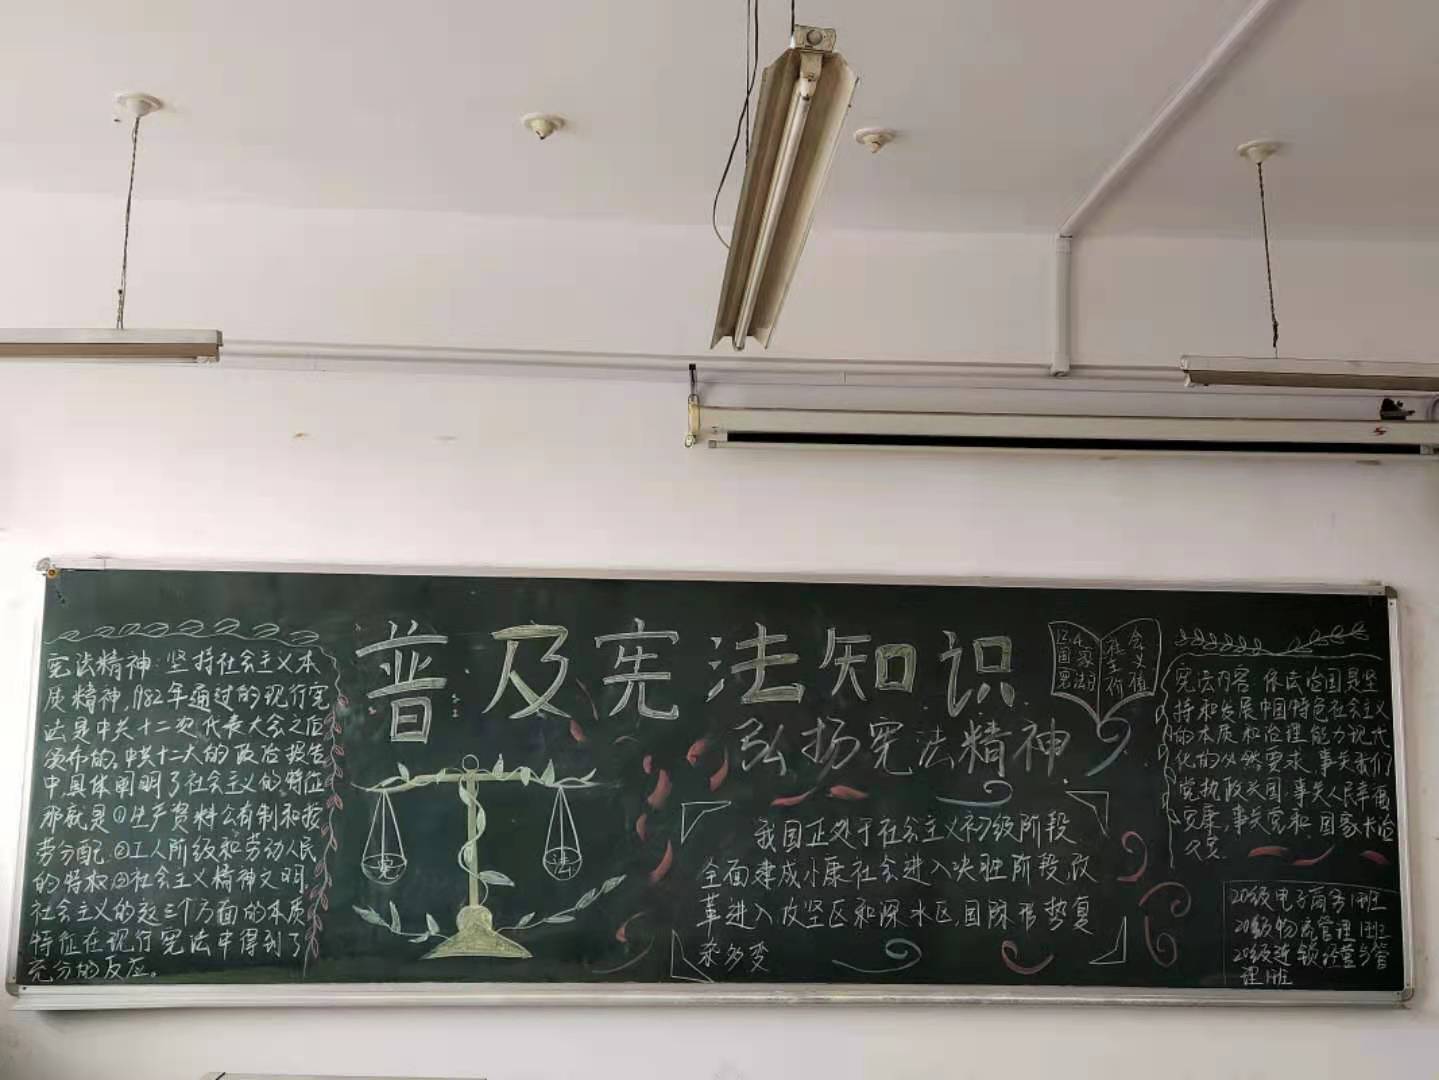 普及宪法知识
弘扬宪法精神
宪法精神:坚持社会主义本
质精神,1982年通过的现行宪
法是中共十二次代表大会之后
颁布的。中共十二大的政治报告
中,具体阐明了社会主义的特征
那就是①生产资料公有制和按
劳分配.②工人阶级和劳动人民
的特权③社会主义精神文明.
社会主义的这三个方面的本质
特征在现行宪法中得到了
充分的反应。
宪
法
12.4
国家
宪法日
社会
主义
价值
我国正处于社会主义初级阶段
全面建成小康社会进入决胜阶段,改
革进入攻坚区和深水区,国际形势复
杂多变
宪法内容 依法治国是坚
持和发展中国特色社会主义
的本质和治理能力现代
化的必然要求,事关我们
党执政兴国,事关人民幸福
安康,事关党和国家长治
久安.
20级电子商务1班
20级物流管理1班
20级连锁经营与管
理1班